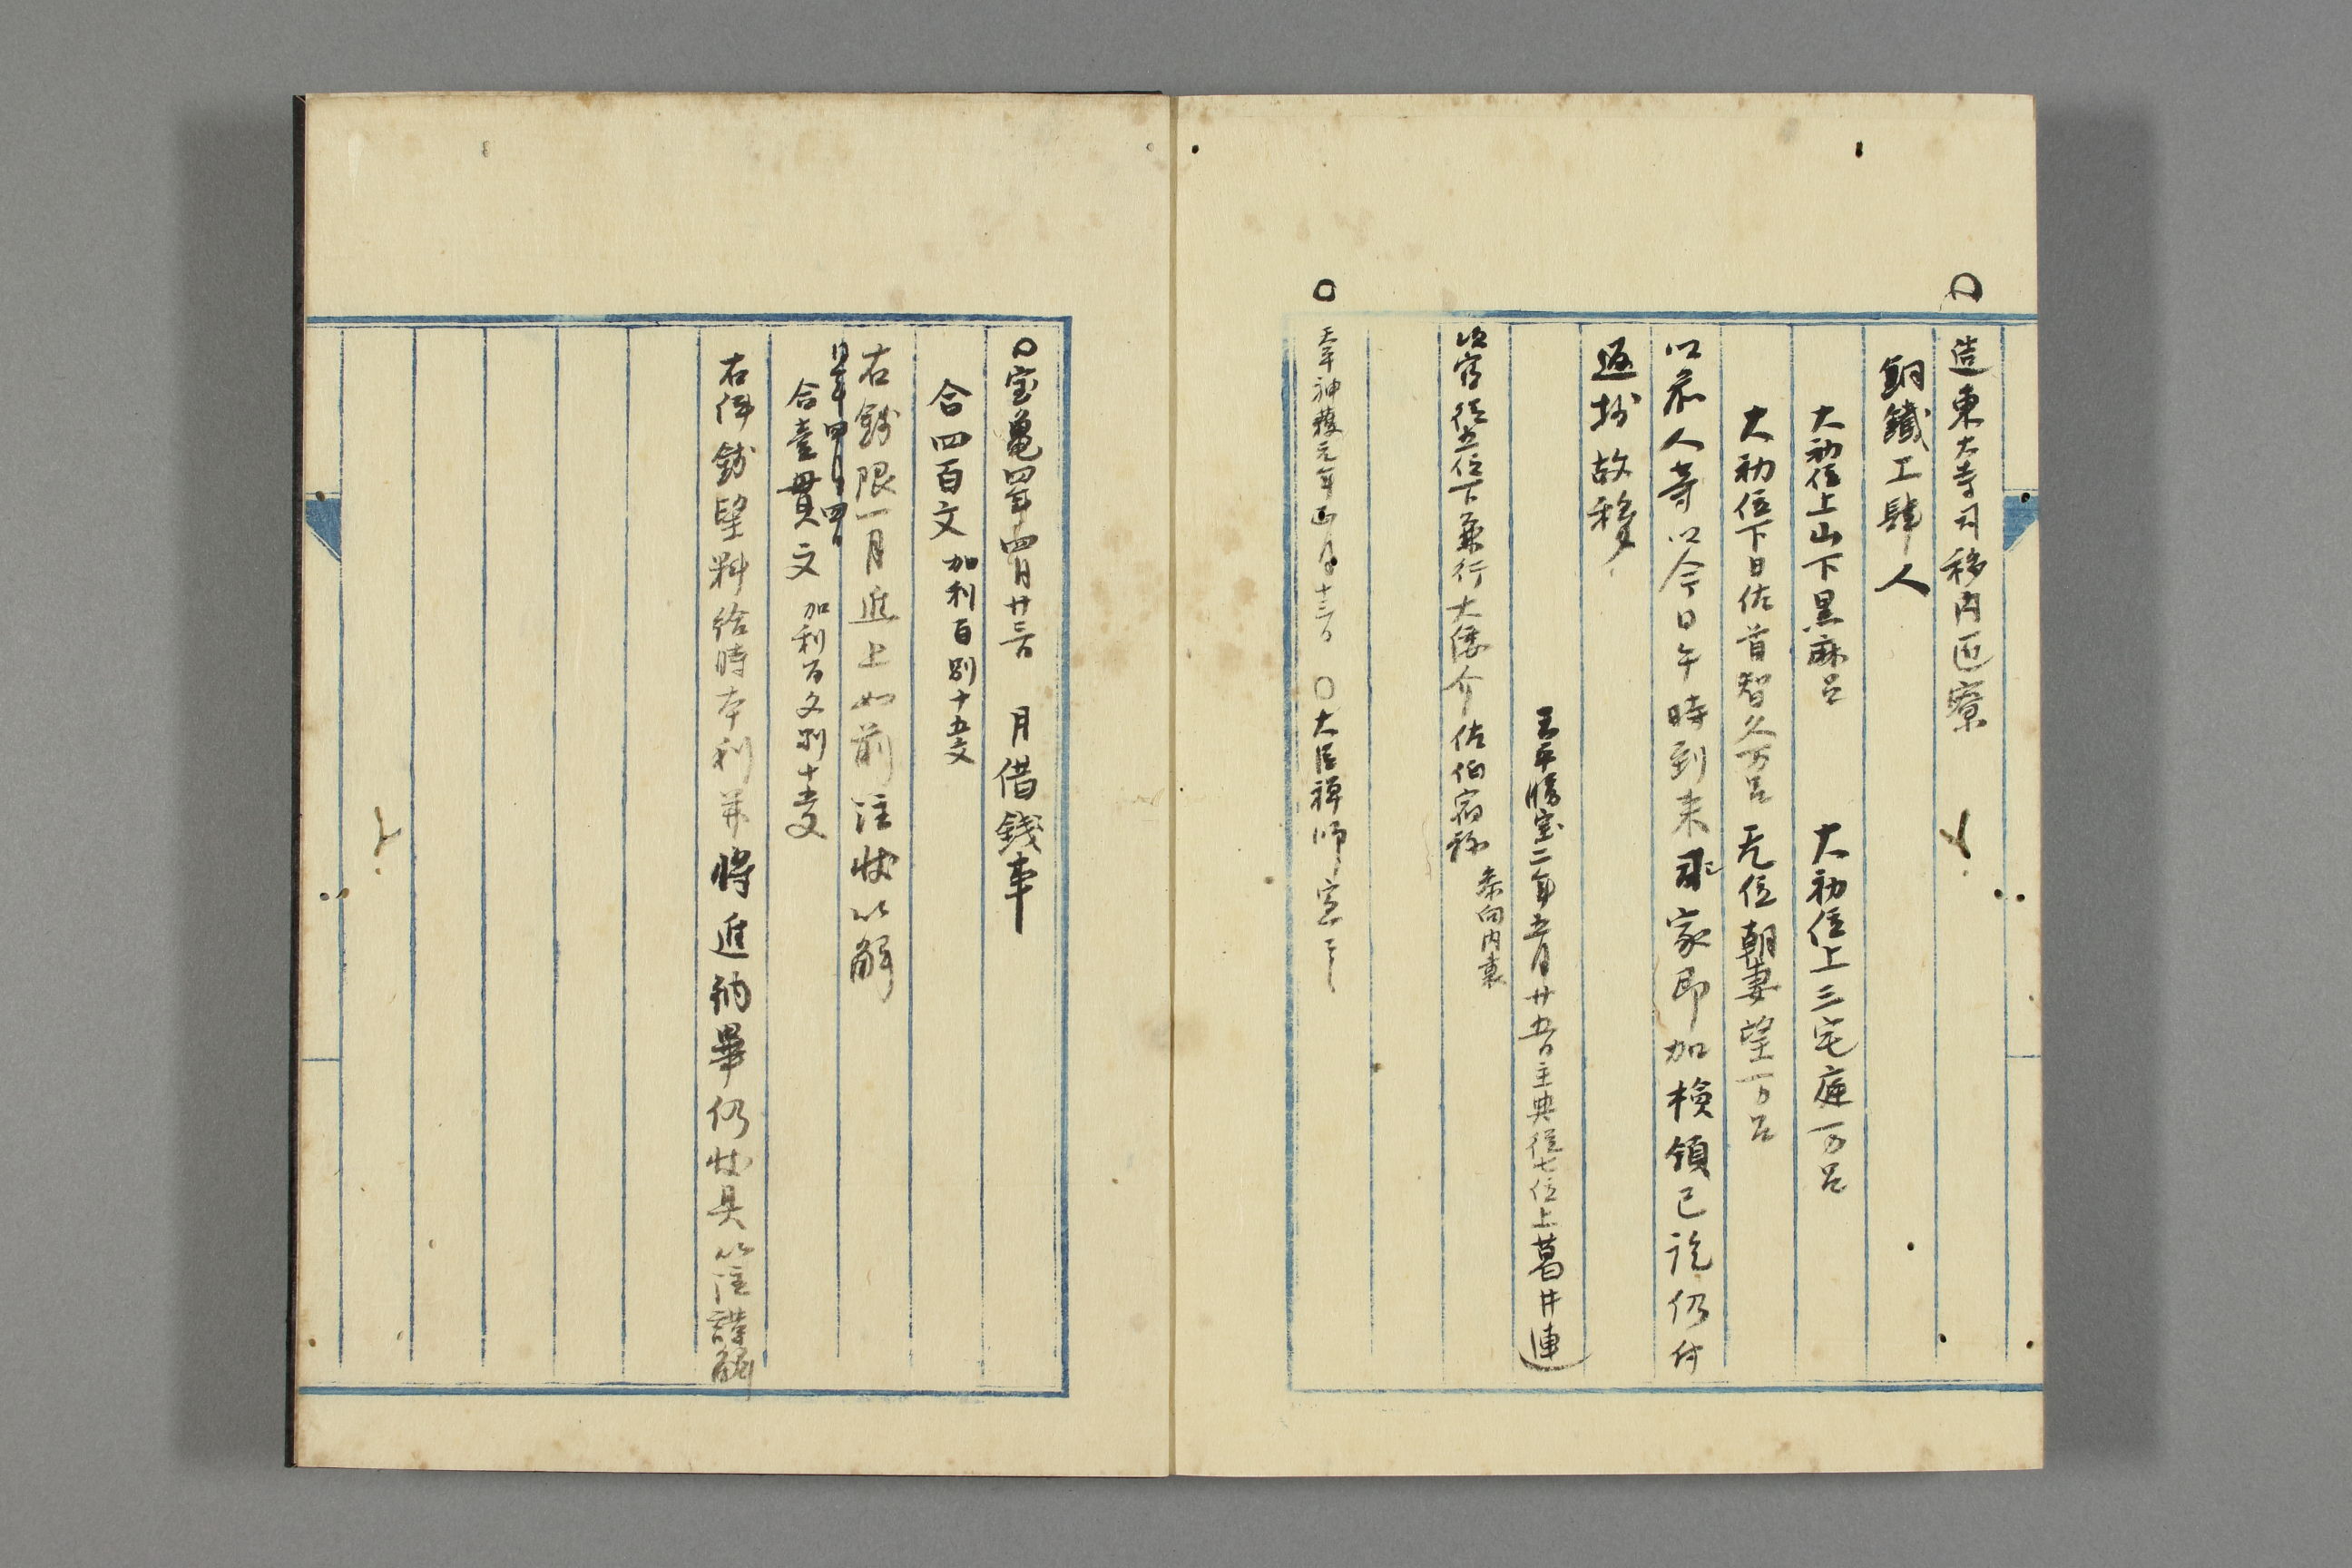 〇造東大寺司移内匠寮
銅鐵工肆人
大初位上山下黒麻呂　大初位上三宅庭万呂
大初位下日佐首智久万呂　无位朝妻望万呂
以前人等以今日午時到来家即加検領已訖仍付
返抄故移
天平勝宝二年五月廿五日主典従七位上葛井連
次官従五位下兼行大倭介佐伯宿祢 参向内裏
〇天平神護元年四月十三日　〇大臣禅師宣云
〇宝亀四年四月廿三日　月借銭事
合四百文 加利百別十五文
右銭限一月進上如前注状以解
同年四月四日
合壹貫文 加利百文別十五文
右件銭望料給時本利并将進納畢仍状具以注謹解